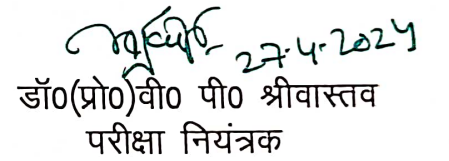 27.4.2024
डॉ0(प्रो0)वी0 पी0 श्रीवास्तव
परीक्षा नियंत्रक